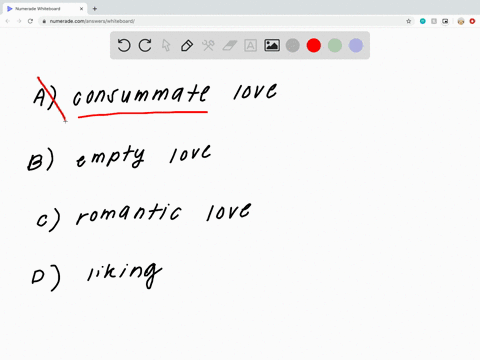 Numerade Whiteboard
numerade.com/answers/whiteboard/
A) consummate love
B) empty love
C) romantic love
D) liking